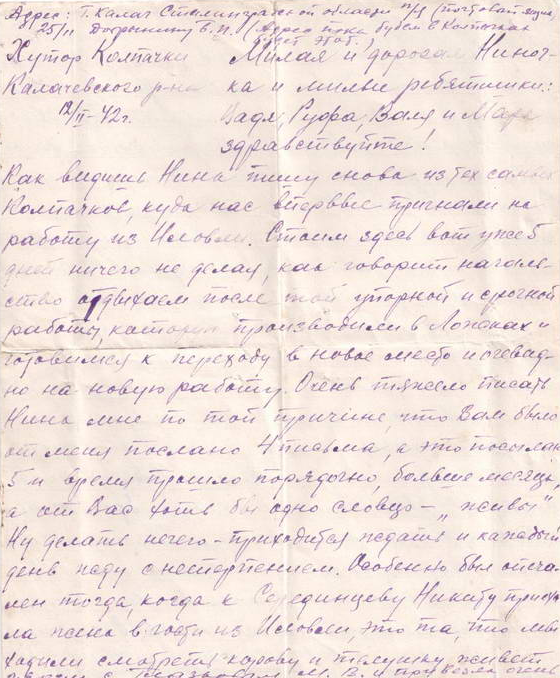 Адрес: г. Калач Сталинградской области п/я (почтовый ящик
25/11 (Адрес пока будем в Колпачках
будет этот.)
Хутор Колпачки Милая и дорогая Ниноч-
Калачевского р-на ка и милые ребятишки:
12/II-42 г. Вадя, Руфа, Валя и Мара
здравствуйте!
Как видишь Нина пишу снова из тех самых
Колпачков, куда нас впервые пригнали на
работу из Иловли. Стоим здесь вот уже 5
дней ничего не делая, как говорит началь-
ство отдыхаем после той упорной и срочной
работы, которую производили в Ложках и
готовимся к переходу в новое место и очевид-
но на новую работу. Очень тяжело писать
Нина мне по той причине, что Вам было
от меня послано 4 письма, а это посылаю
5 и время прошло порядочно, больше месяца,
а от Вас хотя бы одно словцо - "живы"
Ну делать нечего - приходится ждать и каждый
день жду с нестерпением. Особенно был опеча-
лен тогда, когда к Серединцеву Никиту приеха
ла жена в гости из Иловли, это та, что мы
ходили смотреть корову и телушку живет
М. В. и привезла очень